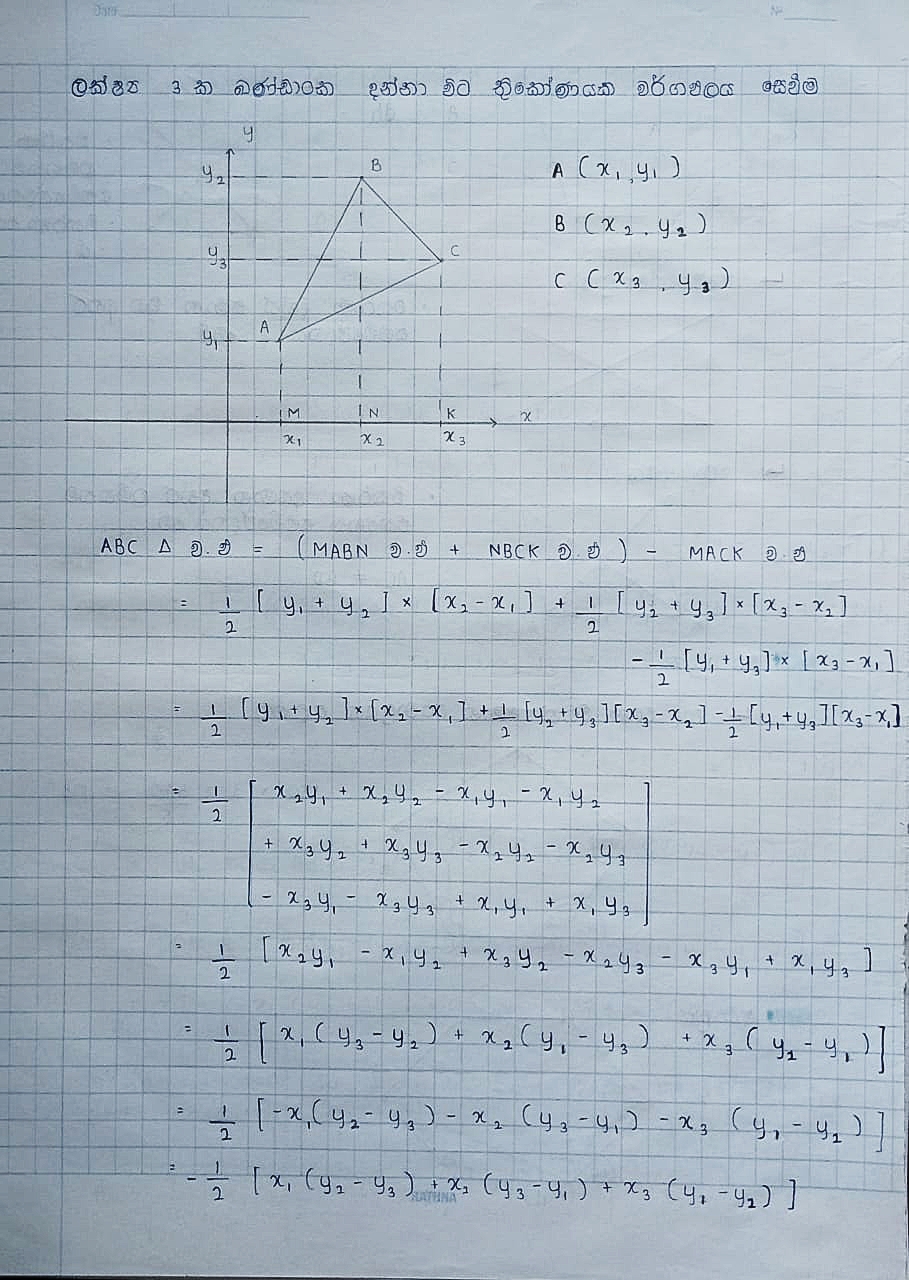 Date
Nº
ලක්ෂ්‍ය 3 ක ඛණ්ඩාංක දන්නා විට ත්‍රිකෝණයක වර්ගඵලය සෙවීම
y
y₂ B A (x₁, y₁)
B (x₂, y₂)
y₃ C C (x₃, y₃)
A
y₁
M N K x
x₁ x₂ x₃
ABC Δ ව.ඵ = (MABN ව.ඵ + NBCK ව.ඵ) - MACK ව.ඵ
= 1/2 [y₁ + y₂] × [x₂ - x₁] + 1/2 [y₂ + y₃] × [x₃ - x₂]
- 1/2 [y₁ + y₃] × [x₃ - x₁]
= 1/2 [y₁ + y₂] × [x₂ - x₁] + 1/2 [y₂ + y₃][x₃ - x₂] - 1/2 [y₁ + y₃][x₃ - x₁]
= 1/2 [ x₂y₁ + x₂y₂ - x₁y₁ - x₁y₂
+ x₃y₂ + x₃y₃ - x₂y₂ - x₂y₃
- x₃y₁ - x₃y₃ + x₁y₁ + x₁y₃ ]
= 1/2 [x₂y₁ - x₁y₂ + x₃y₂ - x₂y₃ - x₃y₁ + x₁y₃]
= 1/2 [x₁(y₃ - y₂) + x₂(y₁ - y₃) + x₃(y₂ - y₁)]
= 1/2 [-x₁(y₂ - y₃) - x₂(y₃ - y₁) - x₃(y₁ - y₂)]
= - 1/2 [x₁(y₂ - y₃) + x₂(y₃ - y₁) + x₃(y₁ - y₂)]
RATHNA